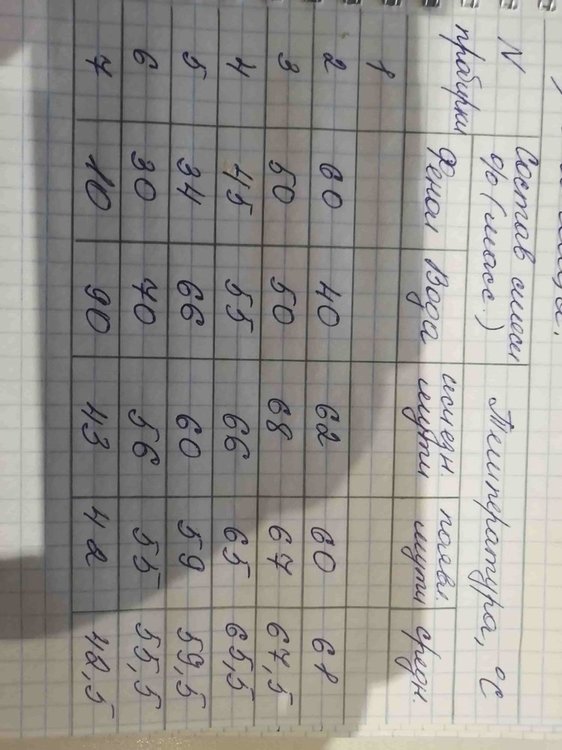 N Состав смеси Температура, °C
пробирки % (масс.)
Фенол Вода исчезн. появл. средн.
мути мути
1
2 60 40 62 60 61
3 50 50 68 67 67,5
4 45 55 66 65 65,5
5 34 66 60 59 59,5
6 30 70 56 55 55,5
7 10 90 43 42 42,5